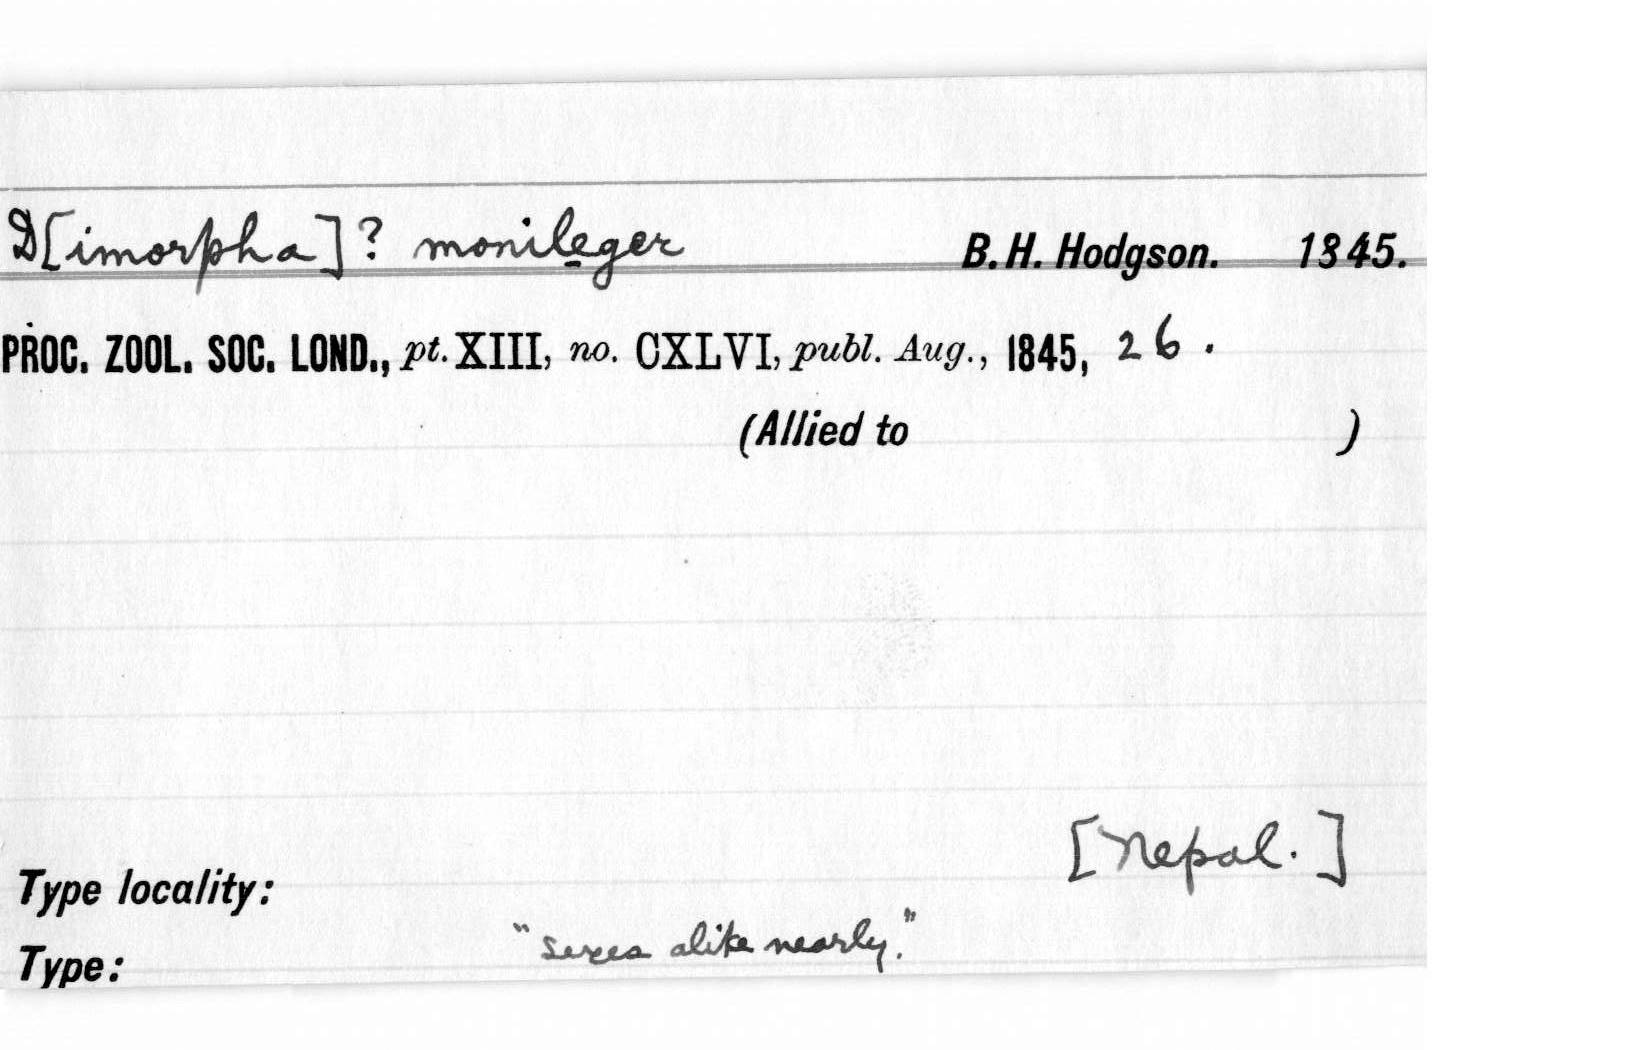 D[imorpha]? monileger B. H. Hodgson. 1845.
PROC. ZOOL. SOC. LOND., pt. XIII, no. CXLVI, publ. Aug., 1845, 26.
(Allied to )
[Nepal.]
Type locality:
Type: "sexes alike nearly."